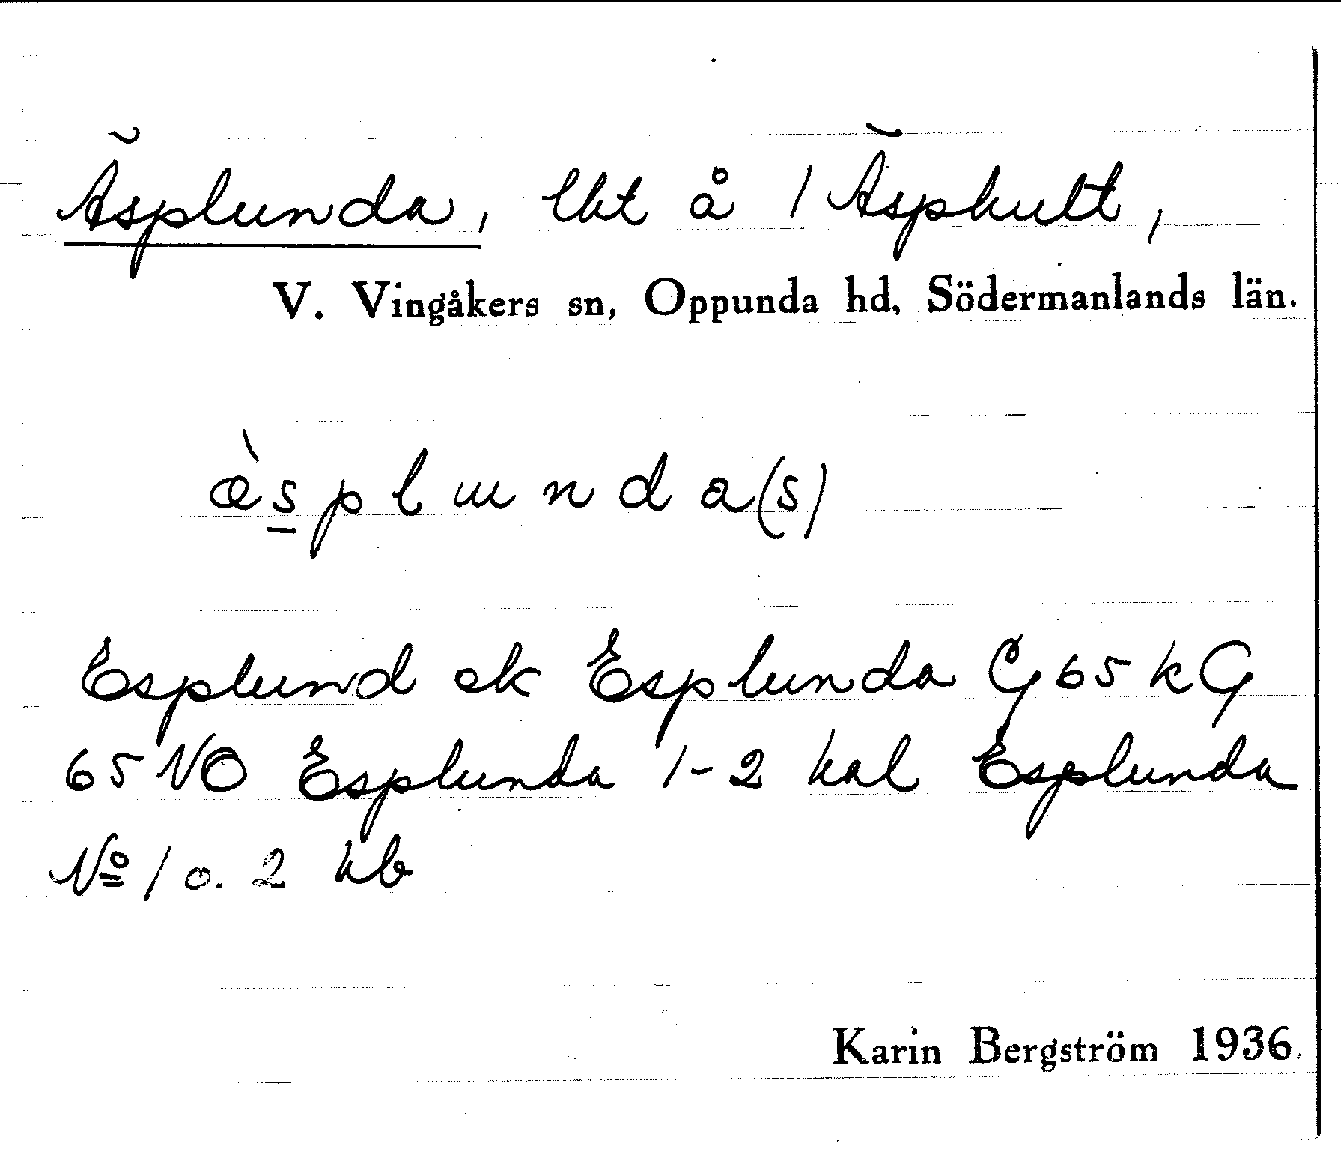 Äsplunda, lht å 1 Äsphult,
V. Vingåkers sn, Oppunda hd, Södermanlands län.
æ̀s̲plɯnda(s)
Esplund ek Esplunda G 65 k G
65 NO Esplunda 1-2 hal Esplunda
№ 1 o. 2 hb
Karin Bergström 1936.